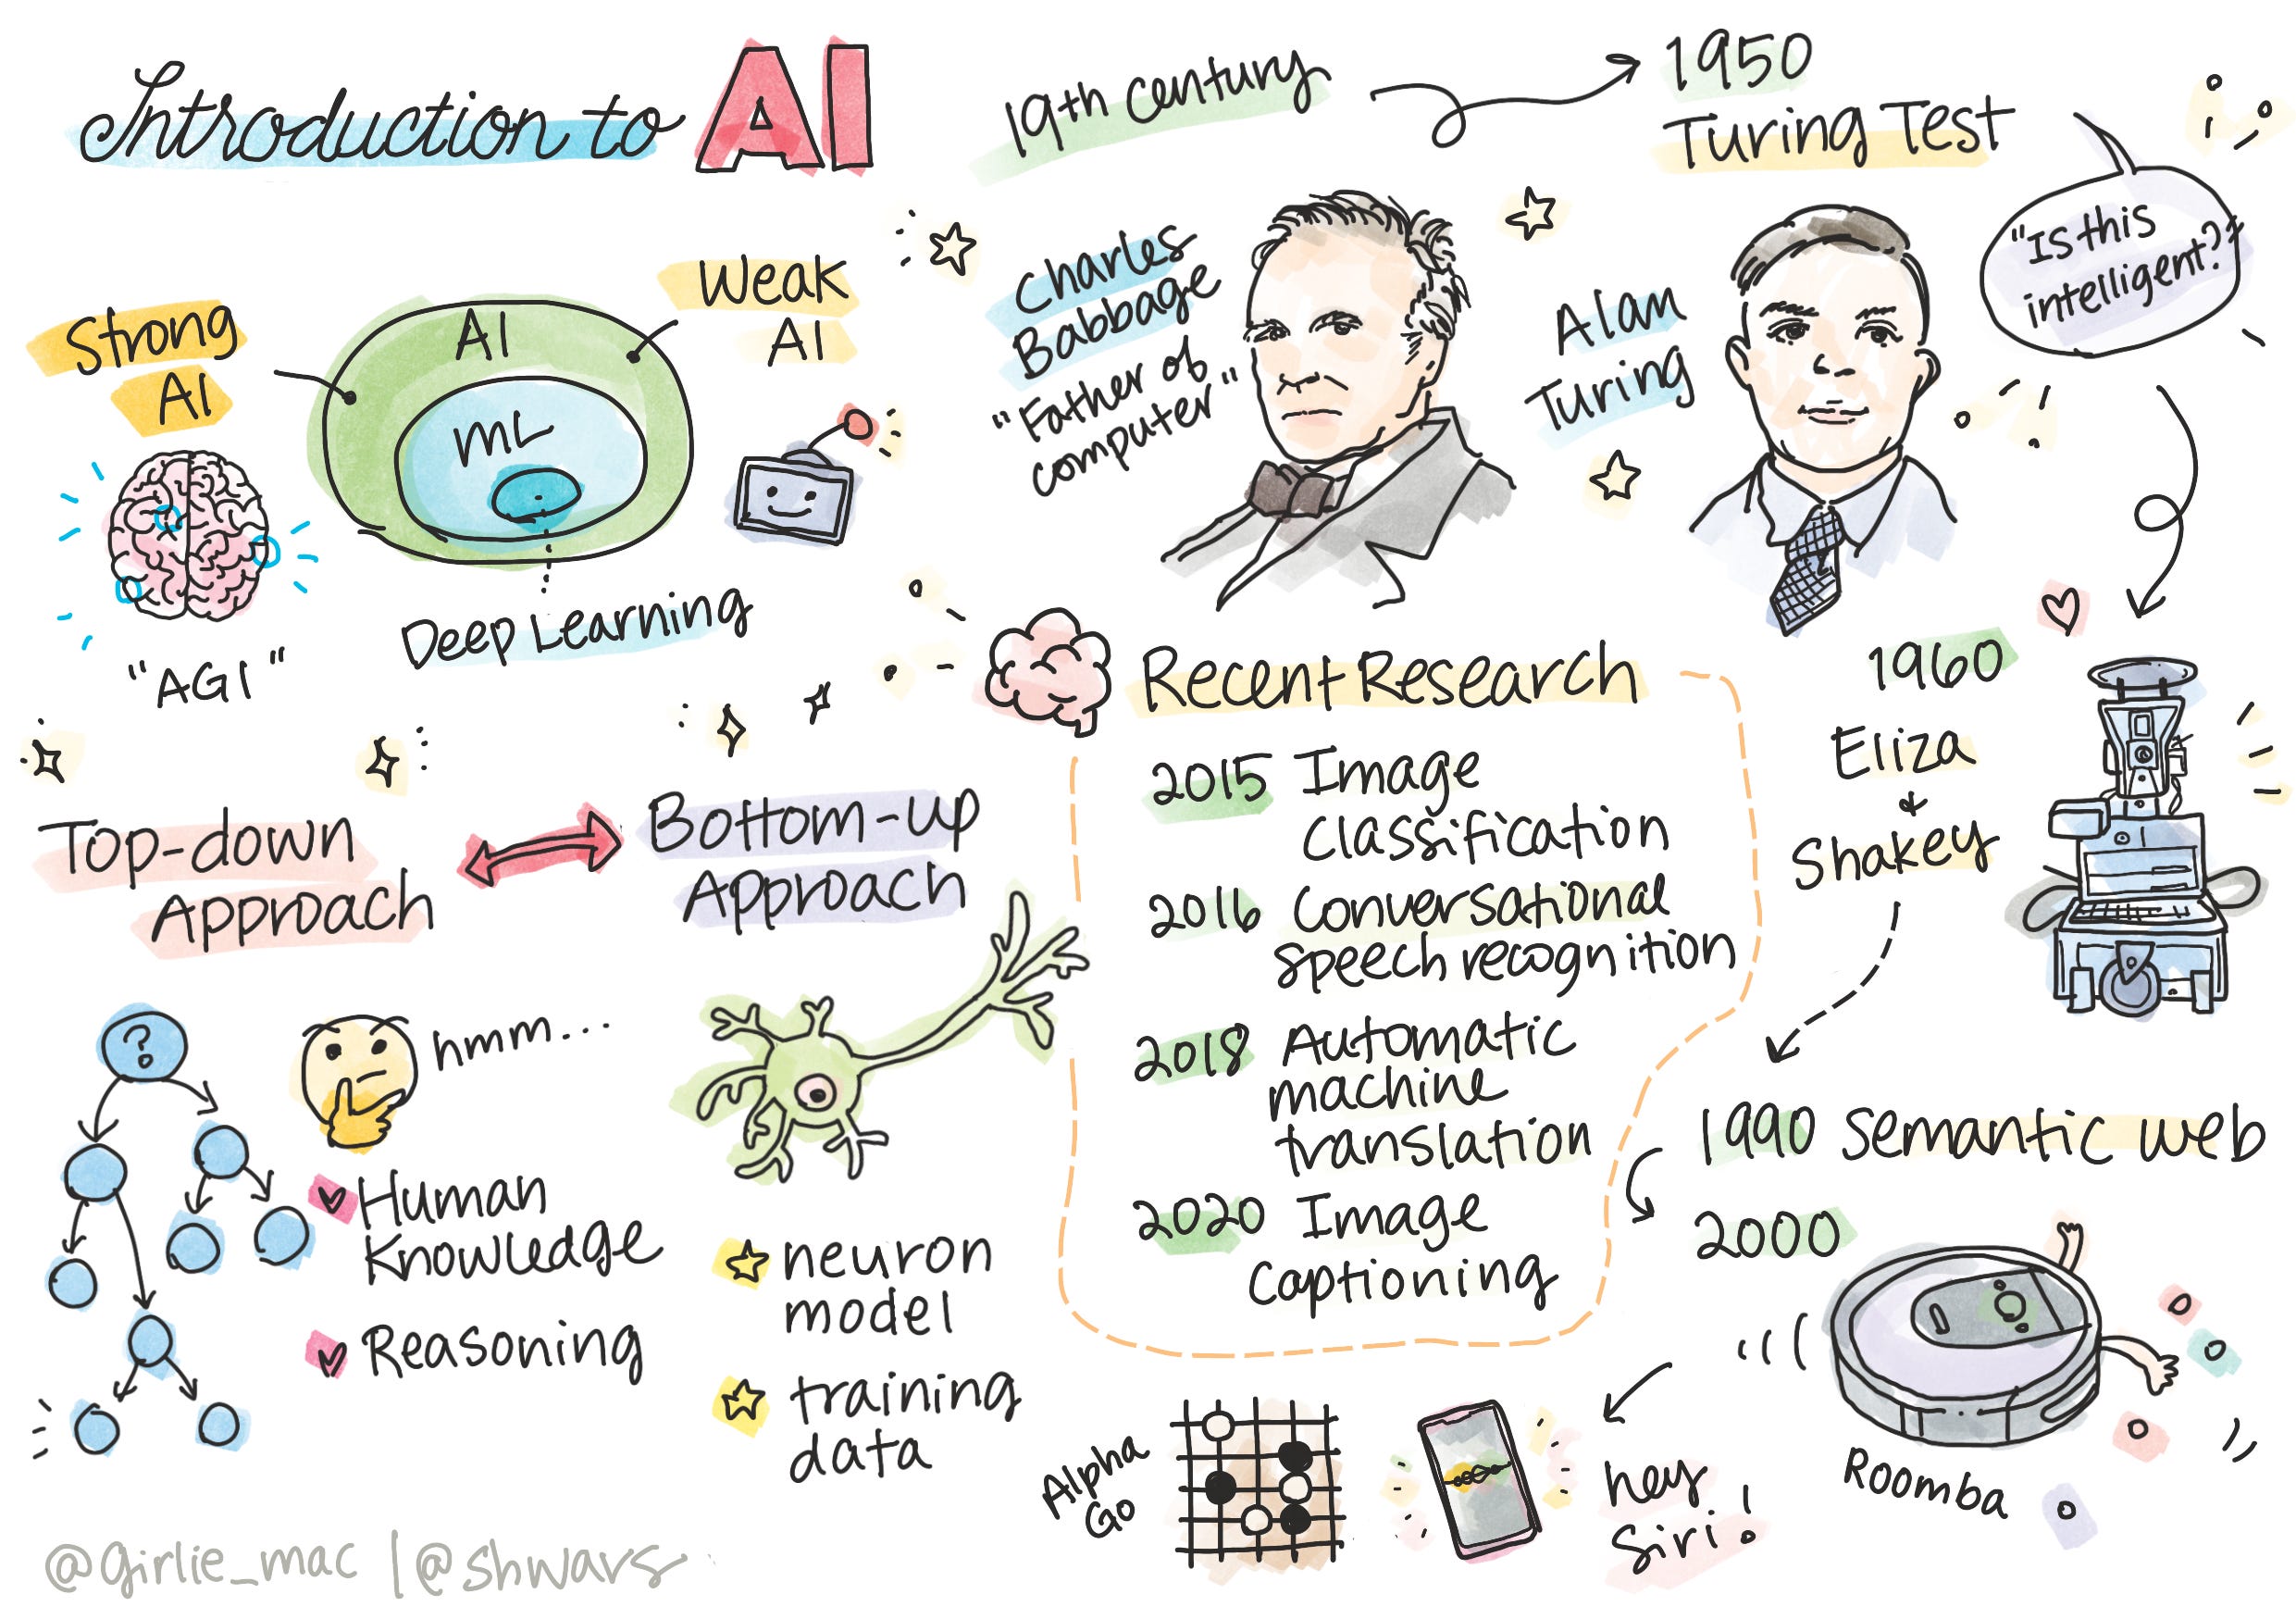 Introduction to AI
Strong
AI
"AGI"
AI
ML
Deep Learning
Weak
AI
19th century
Charles
Babbage
"Father of
computer"
1950
Turing Test
Alan
Turing
"Is this
intelligent?"
1960
Eliza
&
Shakey
1990 Semantic web
2000
Roomba
hey
Siri!
Alpha
Go
Recent Research
2015 Image
Classification
2016 Conversational
speech recognition
2018 Automatic
machine
translation
2020 Image
Captioning
Top-down
Approach
?
hmm...
Human
Knowledge
Reasoning
Bottom-up
Approach
neuron
model
training
data
@girlie_mac | @shwars